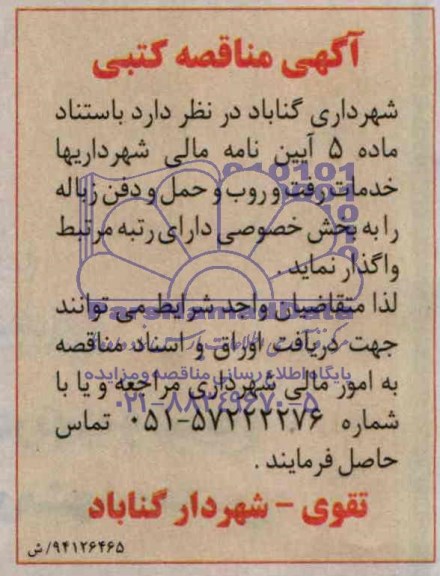 آگهی مناقصه کتبی
شهرداری گناباد در نظر دارد باستناد
ماده ۵ آیین نامه مالی شهرداریها
خدمات رفت و روب و حمل و دفن زباله
را به بخش خصوصی دارای رتبه مرتبط
واگذار نماید .
لذا متقاضیان واجد شرایط می توانند
ParsNamadData
جهت دریافت اوراق و اسناد مناقصه
پایگاه اطلاع رسانی مناقصه و مزایده
به امور مالی شهرداری مراجعه و یا با
۰۲۱-۸۸۳۴۹۶۷۰-۵
شماره ۵۷۲۲۲۲۷۶-۰۵۱ تماس
حاصل فرمایند .
تقوی - شهردار گناباد
۹۴۱۲۶۴۶۵/ش